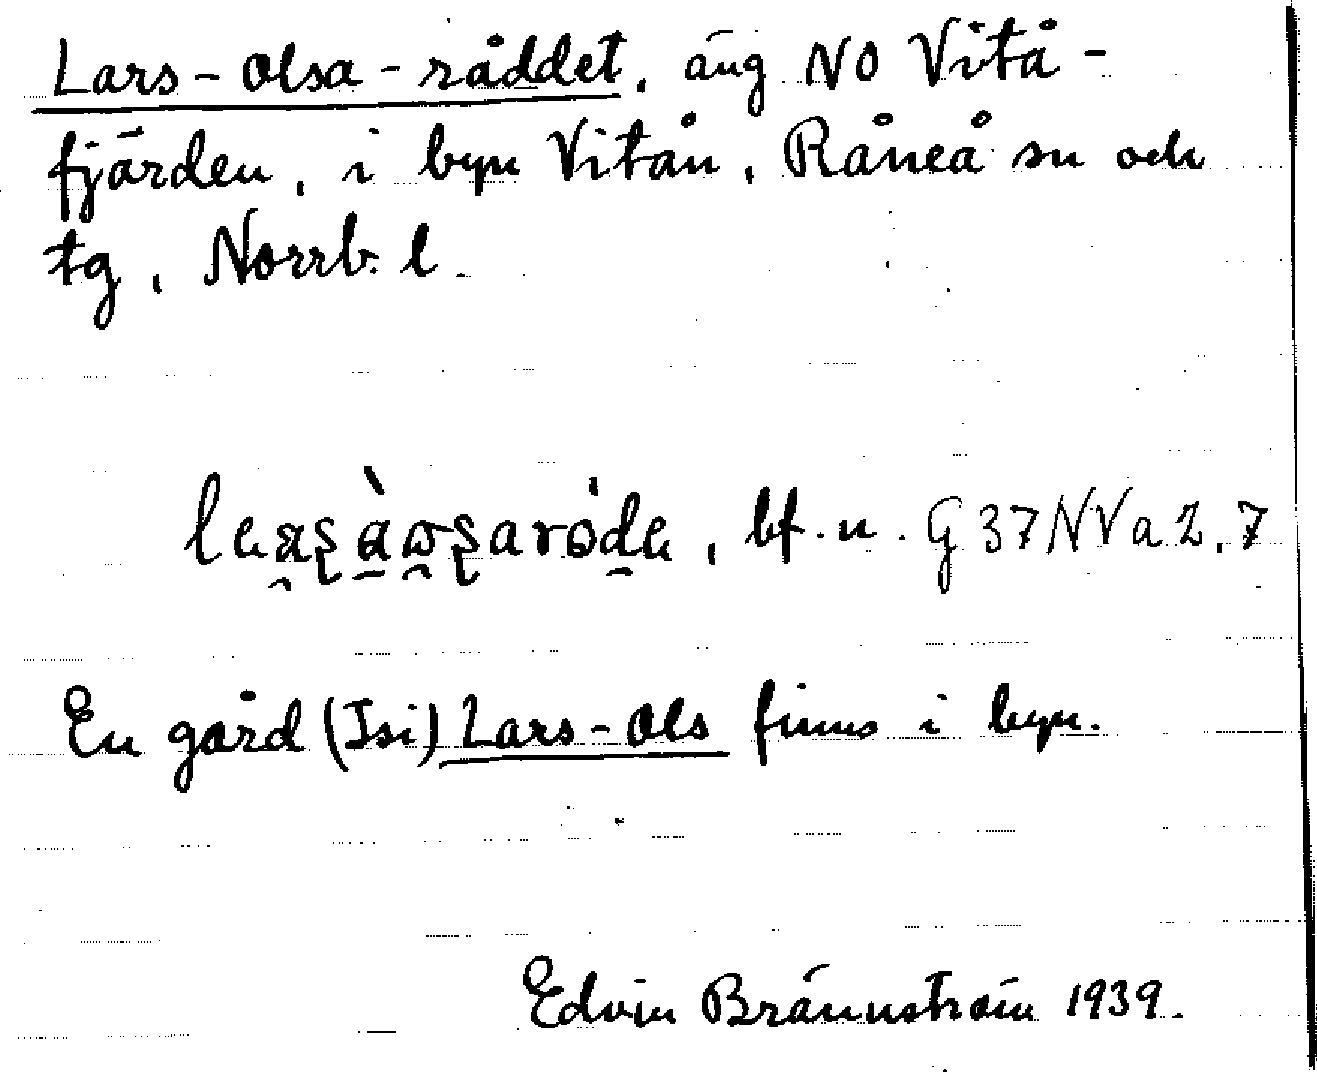 Lars-Olsa-råddet, äng NO Vitå-
fjärden, i byn Vitån, Råneå sn och
tg, Norrb. l.
bf. n. G 37 NVa 2,7
En gård (Isi) Lars-Ols finns i byn.
Edvin Brännström 1939.